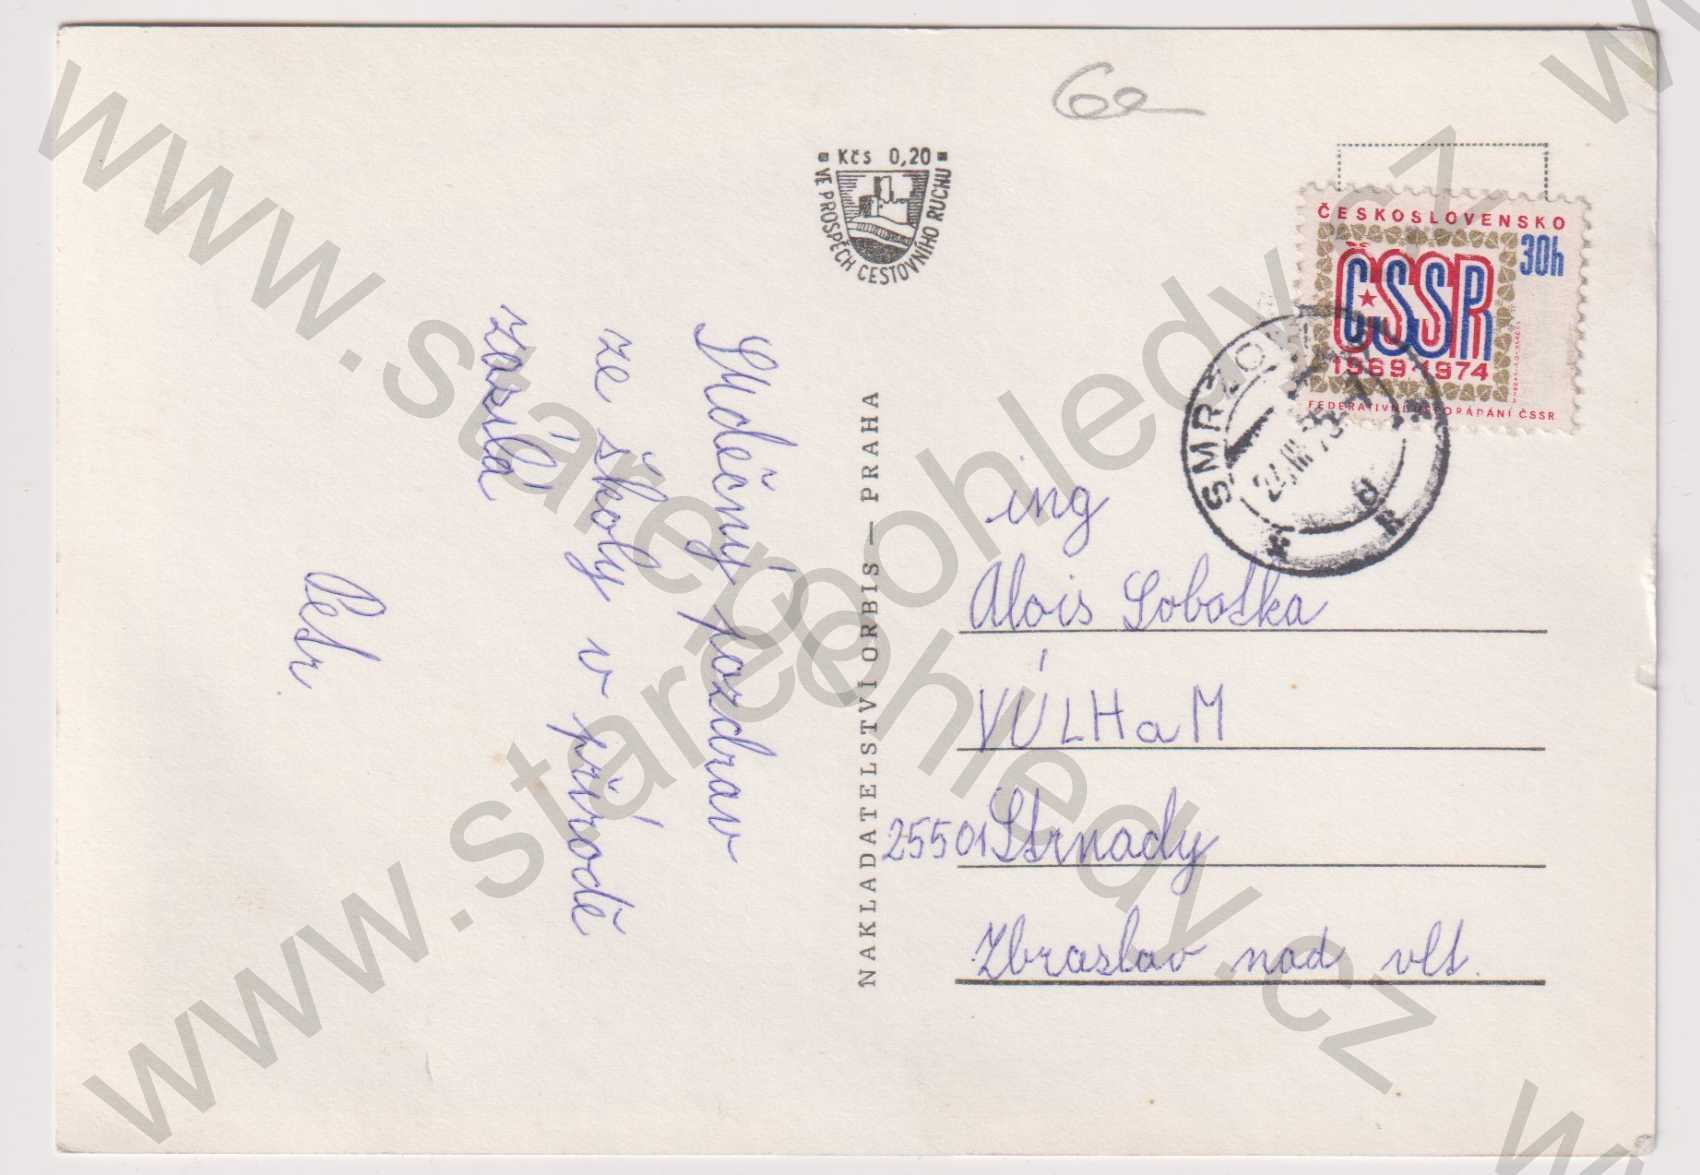 6e
Kčs 0,20
VE PROSPĚCH CESTOVNÍHO RUCHU
ČESKOSLOVENSKO
30h
ČSSR
1969-1974
FEDERATIVNÍ USPOŘÁDÁNÍ ČSSR
SMRŽOVKA
Srdečný pozdrav
ze školy v přírodě
zasílá
Petr
NAKLADATELSTVÍ ORBIS — PRAHA
ing
Alois Sobotka
VÚLHaM
25501 Strnady
Zbraslav nad vlt.
www.starepohledy.cz
www.starepohledy.cz